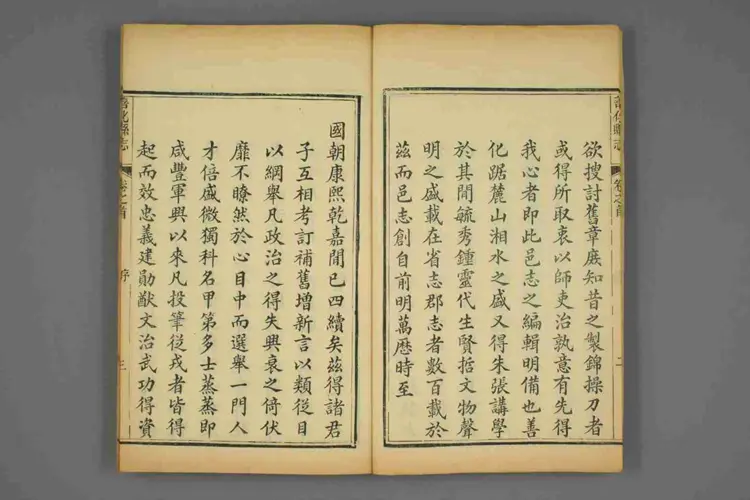 欲搜討舊章庶知昔之製錦操刀者
或得所取衷以師吏治孰意有先得
我心者即此邑志之編輯明備也善
化踞麓山湘水之盛又得朱張講學
於其間毓秀鍾靈代生賢哲文物聲
明之盛載在省志郡志者數百載於
茲而邑志創自前明萬曆時至
二
國朝康熙乾嘉間已四續矣茲得諸君
子互相考訂補舊增新言以類從目
以綱舉凡政治之得失興衰之倚伏
靡不瞭然於心目中而選舉一門人
才倍盛微獨科名甲第多士蒸蒸即
咸豐軍興以來凡投筆從戎者皆得
起而效忠義建勛猷文治武功得資
善化縣志 卷之首 序 三